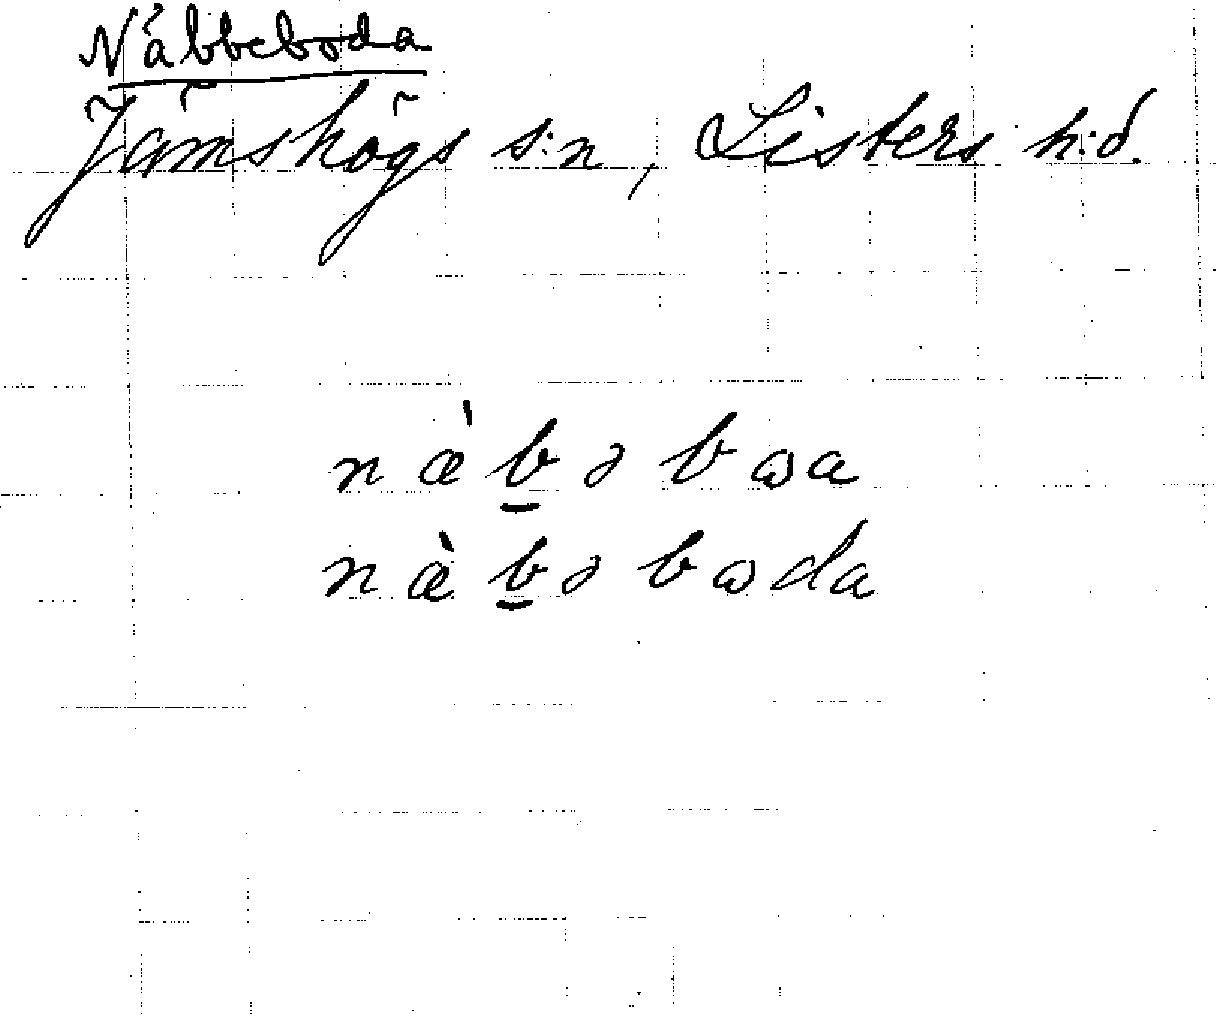 Näbbeboda
Jämshögs s:n, Listers h:d.
næ̀b̲ əbωa
næ̀b̲ əbωda